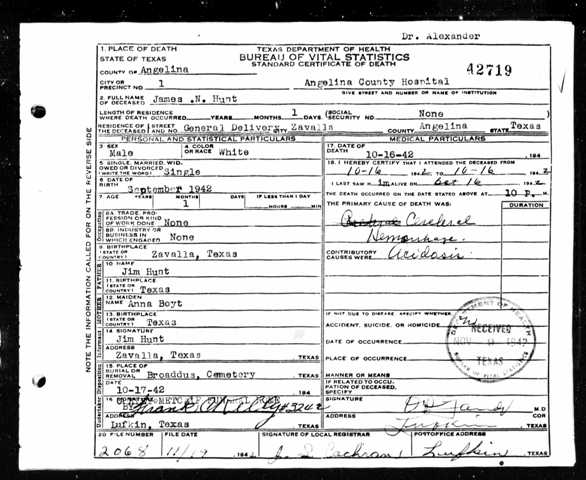 Dr. Alexander
1. PLACE OF DEATH
STATE OF TEXAS
TEXAS DEPARTMENT OF HEALTH
BUREAU OF VITAL STATISTICS
STANDARD CERTIFICATE OF DEATH
42719
COUNTY OF Angelina
CITY OR PRECINCT NO. 1 Angelina County Hospital
GIVE STREET AND NUMBER OR NAME OF INSTITUTION
2. FULL NAME OF DECEASED James .N. Hunt
LENGTH OF RESIDENCE WHERE DEATH OCCURRED YEARS MONTHS 1 DAYS (SOCIAL SECURITY NO. None
RESIDENCE OF THE DECEASED (STREET AND NO. General Delivery CITY Zavalla COUNTY Angelina STATE Texas
PERSONAL AND STATISTICAL PARTICULARS
MEDICAL PARTICULARS
3 SEX Male
4 COLOR OR RACE White
5 SINGLE, MARRIED, WID. OWED OR DIVORCED (WRITE THE WORD) Single
6 DATE OF BIRTH September 1942
7 AGE YEARS MONTHS DAYS IF LESS THAN 1 DAY
1 1 HOURS MIN
8A TRADE, PROFESSION OR KIND OF WORK DONE None
8B INDUSTRY OR BUSINESS IN WHICH ENGAGED None
9 BIRTHPLACE (STATE OR COUNTRY) Zavalla, Texas
10 NAME Jim Hunt
11 BIRTHPLACE (STATE OR COUNTRY) Texas
12 MAIDEN NAME Anna Boyt
13 BIRTHPLACE (STATE OR COUNTRY) Texas
14 SIGNATURE Jim Hunt
ADDRESS Zavalla, Texas TEXAS
15 PLACE OF BURIAL OR REMOVAL Broaddus, Cemetery TEXAS
DATE 10-17-42 194
16
ADDRESS Lufkin, Texas TEXAS
17. DATE OF DEATH 10-16-42 194
18. I HEREBY CERTIFY THAT I ATTENDED THE DECEASED FROM
10-16 1942 TO 10-16 1942
I LAST SAW H im ALIVE ON Oct 16 1942
THE DEATH OCCURRED ON THE DATE STATED ABOVE AT 10 P. M.
THE PRIMARY CAUSE OF DEATH WAS: DURATION
Cerebral
Hemorrhage.
CONTRIBUTORY CAUSES WERE: Acidosis
IF NOT DUE TO DISEASE SPECIFY WHETHER
ACCIDENT, SUICIDE, OR HOMICIDE
DATE OF OCCURRENCE
PLACE OF OCCURRENCE
MANNER OR MEANS
IF RELATED TO OCCUPATION OF DECEASED, SPECIFY
SIGNATURE M.D.
ADDRESS Lufkin TEXAS
DEPARTMENT OF HEALTH
RECEIVED
1942
TEXAS
BUREAU OF VITAL STATISTICS
20 FILE NUMBER FILE DATE SIGNATURE OF LOCAL REGISTRAR POSTOFFICE ADDRESS
2068 11/19 1942 Cochran Lufkin TEXAS
NOTE THE INFORMATION CALLED FOR ON THE REVERSE SIDE
FATHER
MOTHER
Informant